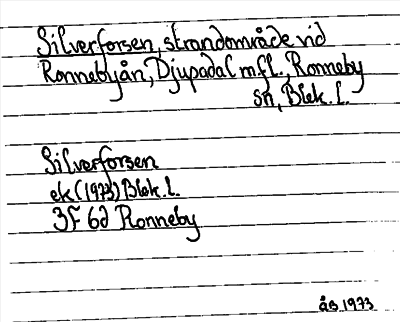 Silverforsen, strandområde vid
Ronnebyån, Djupadal m.fl., Ronneby
sn, Blek. l.
Silverforsen
ek (1973) Blek. l.
3F 6d Ronneby
ås 1973